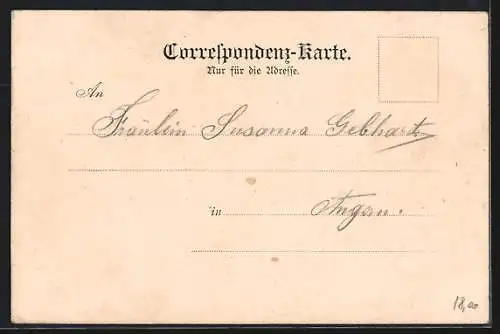 Correspondenz-Karte.
Nur für die Adresse.
An
Fräulein Susanna Gebhart
in
18,00